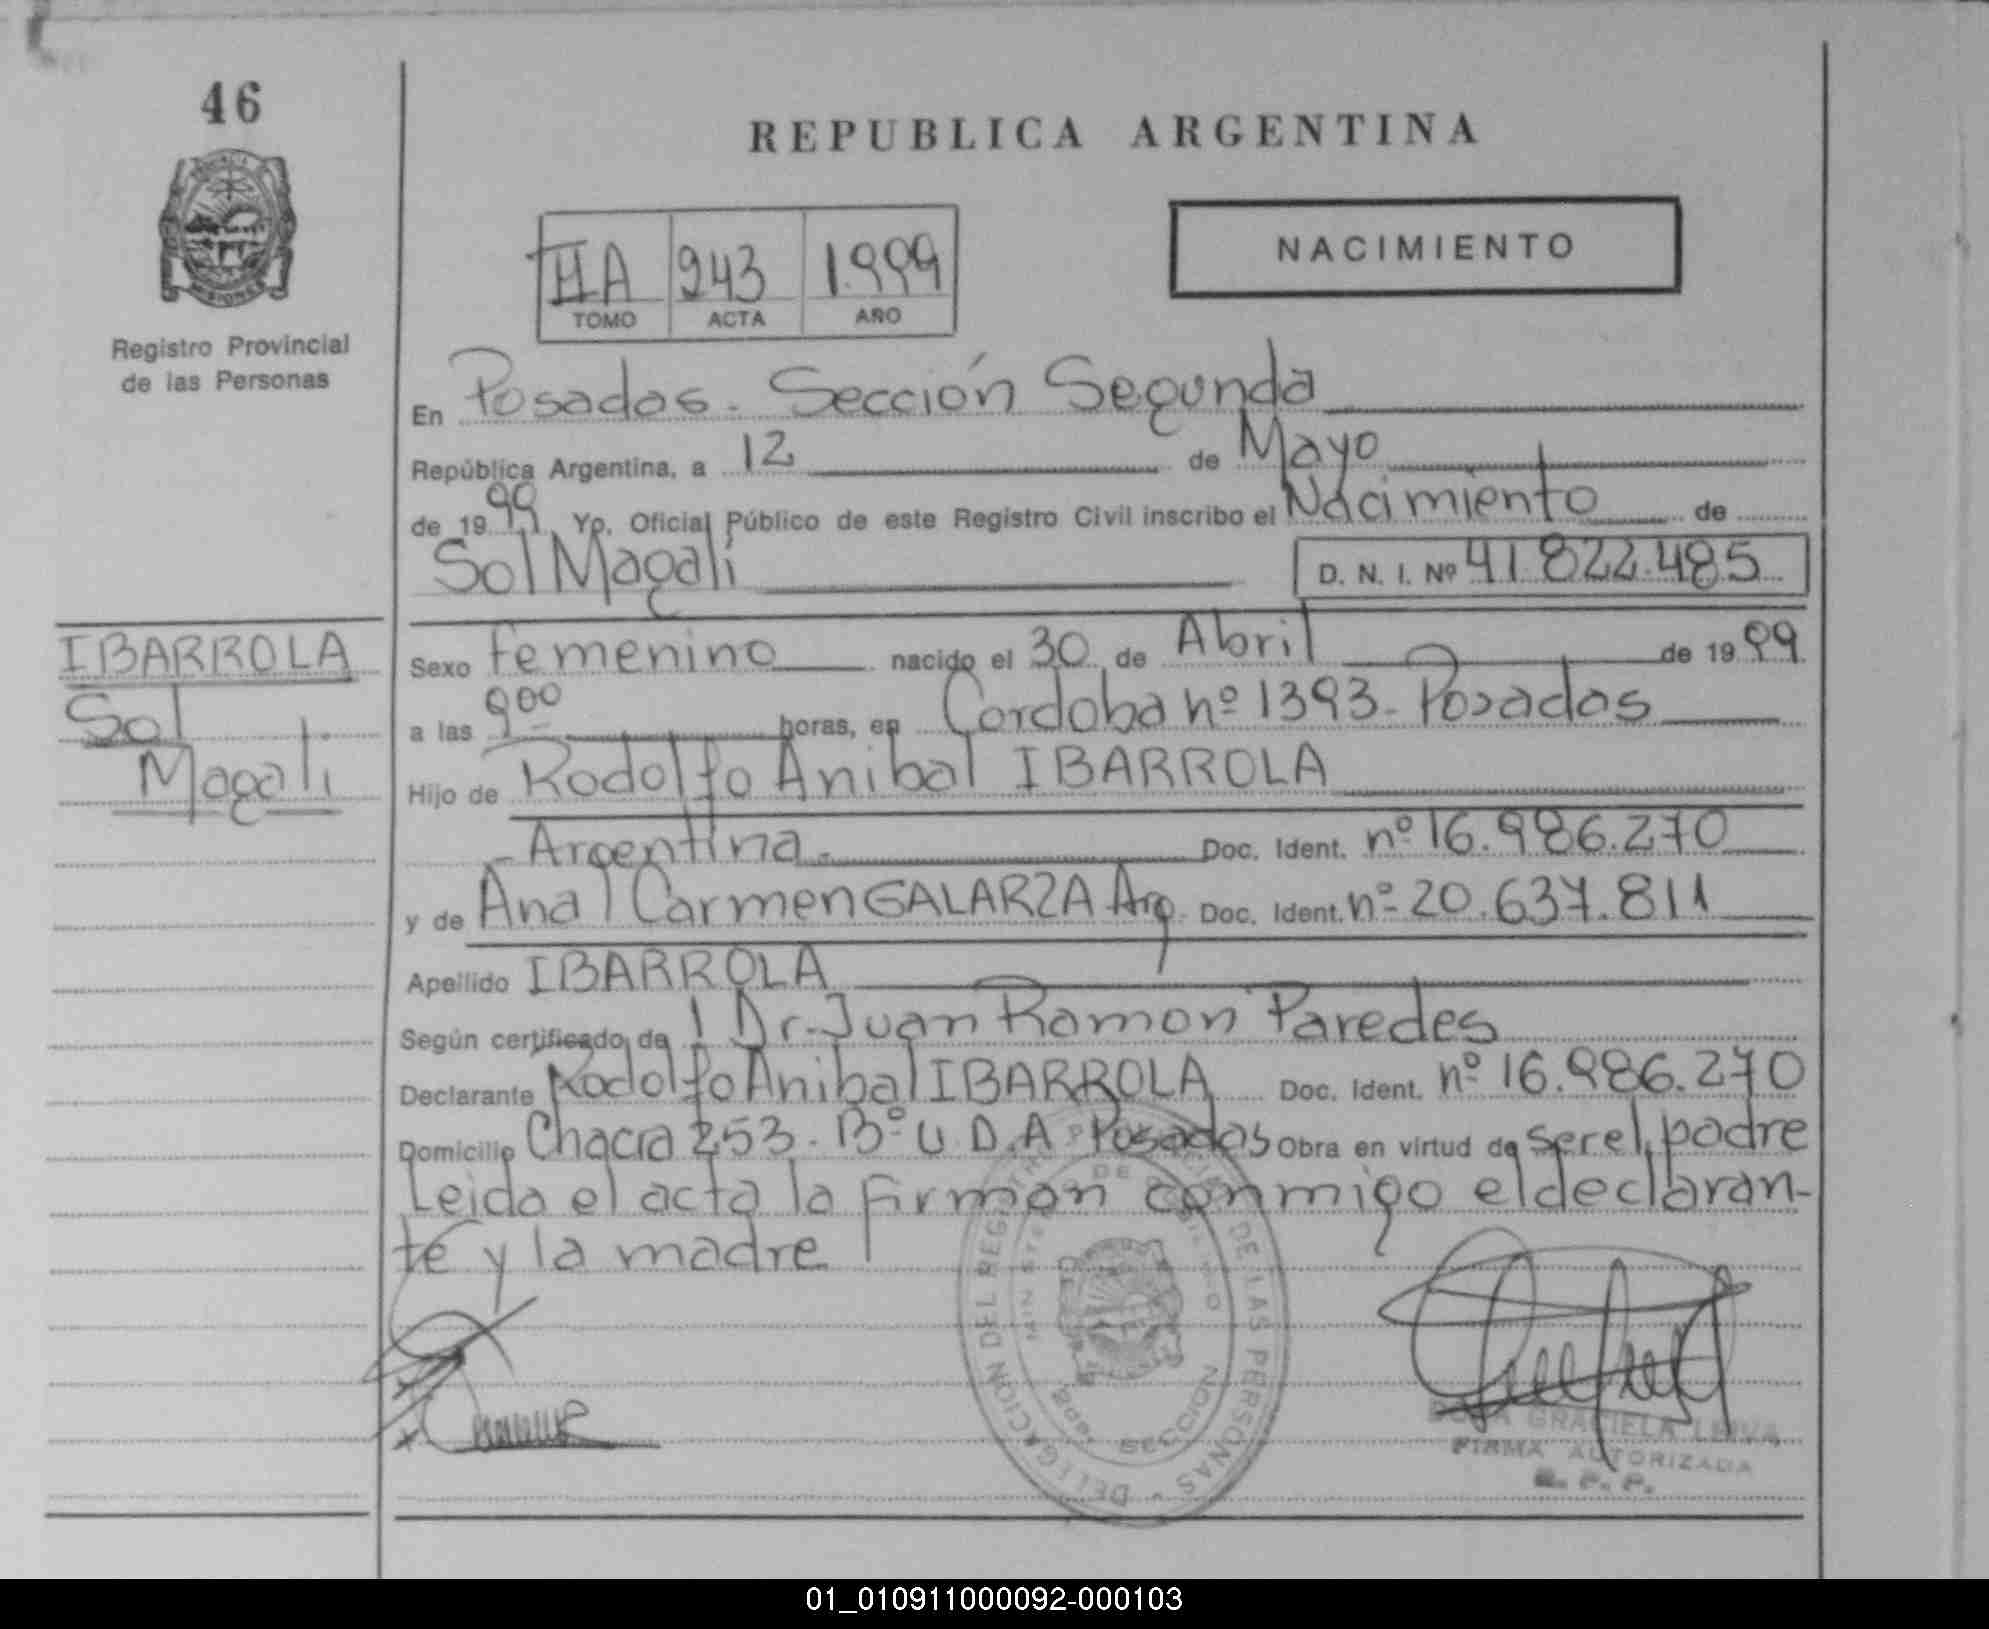 46
REPUBLICA ARGENTINA
NACIMIENTO
IIA 943 1.999
TOMO ACTA AÑO
Registro Provincial
de las Personas
En Posadas. Sección Segunda
República Argentina, a 12 de Mayo
de 1999 Yo, Oficial Público de este Registro Civil inscribo el Nacimiento de
Sol Magali D. N. I. Nº 41.822.485
IBARROLA
Sol
Magali
Sexo femenino nacido el 30 de Abril de 1999
a las 9 00 horas, en Cordoba nº 1393 - Posadas
Hijo de Rodolfo Anibal IBARROLA
- Argentina - Doc. Ident. nº 16.986.270
y de Ana Carmen GALARZA Arg. Doc. Ident. nº 20.637.811
Apellido IBARROLA
Según certificado de Dr. Juan Ramon Paredes
Declarante Rodolfo Anibal IBARROLA Doc. Ident. nº 16.986.270
Domicilio Chacra 253. Bº U.D.A Posadas Obra en virtud de ser el padre
Leida el acta la firman conmigo el declaran-
te y la madre
DELEGACION DEL REGISTRO DE LAS PERSONAS
SECCION
GRACIELA LEIVA
FIRMA AUTORIZADA
R. P. P.
01_010911000092-000103